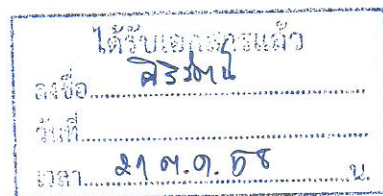 ได้รับเอกสารแล้ว
ลงชื่อ ศิริรัตน์
วันที่
เวลา 21 ต.ค. 58 น.